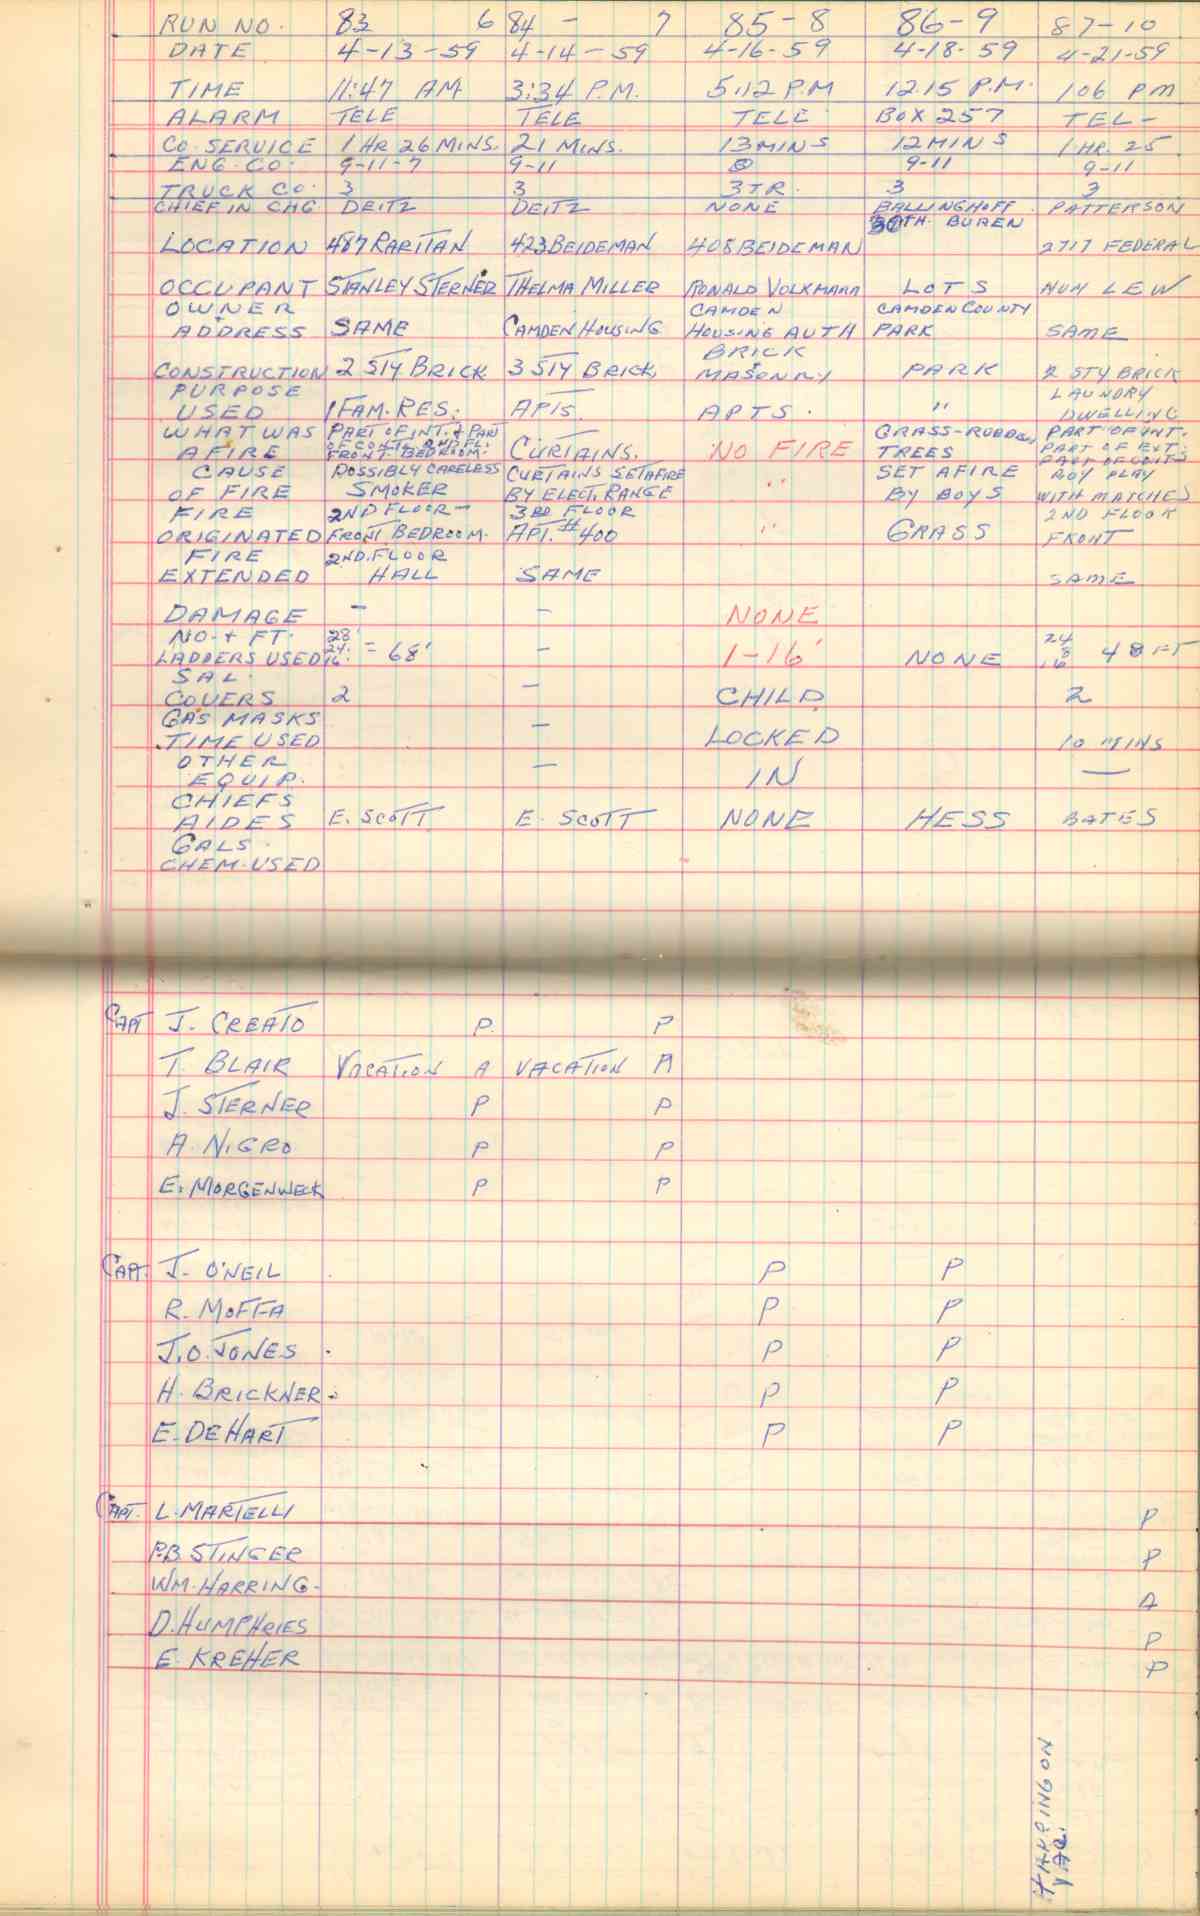 RUN NO. 83 6 84 - 7 85-8 86-9 87-10
DATE 4-13-59 4-14-59 4-16-59 4-18-59 4-21-59
TIME 11:47 AM 3:34 P.M. 5:12 P.M 12.15 P.M. 106 PM
ALARM TELE TELE TELE BOX 257 TEL-
CO. SERVICE 1 HR 26 MINS. 21 MINS. 13 MINS 12 MINS 1 HR. 25
ENG. CO. 9-11-7 9-11 9-11 9-11
TRUCK CO. 3 3 3 TR. 3 3
CHIEF IN CHG. DEITZ DEITZ NONE BALLINGHOFF PATTERSON
30TH. BUREN
LOCATION 487 RARITAN 423 BEIDEMAN 408 BEIDEMAN 2717 FEDERAL
OCCUPANT STANLEY STERNER THELMA MILLER RONALD VOLKMANN LOTS HUM LEW
OWNER CAMDEN CAMDEN COUNTY
ADDRESS SAME CAMDEN HOUSING HOUSING AUTH PARK SAME
BRICK
CONSTRUCTION 2 STY BRICK 3 STY BRICK, MASONRY PARK 2 STY BRICK
PURPOSE LAUNDRY
USED 1 FAM. RES. APTS. APTS. " DWELLING
WHAT WAS PART OF INT. & PART GRASS- PART OF INT.
OF CONT. 2ND FL.
A FIRE FRONT BEDROOM. CURTAINS. NO FIRE TREES PART OF EXT.
PART OF CONTS
CAUSE POSSIBLY CARELESS CURTAINS SET AFIRE " SET AFIRE BOY PLAY
OF FIRE SMOKER BY ELECT. RANGE BY BOYS WITH MATCHES
FIRE 2ND FLOOR- 3RD FLOOR 2ND FLOOR
ORIGINATED FRONT BEDROOM. APT. #400 " GRASS FRONT
FIRE 2ND. FLOOR
EXTENDED HALL SAME SAME
DAMAGE - - NONE
NO. + FT. 28' 24
LADDERS USED 24' 16' = 68' - 1-16' NONE 8 16 48 FT
SAL.
COVERS 2 - CHILD 2
GAS MASKS
TIME USED - LOCKED 10 MINS
OTHER
EQUIP. - IN —
CHIEFS
AIDES E. SCOTT E. SCOTT NONE HESS BATES
GALS.
CHEM. USED
CAPT J. CREATO P. P
T. BLAIR VACATION A VACATION A
J. STERNER P P
A. NIGRO P P
E. MORGENWECK P P
CAPT. J. O'NEIL P P
R. MOFFA P P
J.O. JONES P P
H. BRICKNER P P
E. DEHART P P
CAPT. L. MARTELLI P
P.B. STINGER P
WM. HARRING- A
D. HUMPHRIES P
E. KREHER P
HARRINGON
VAC.